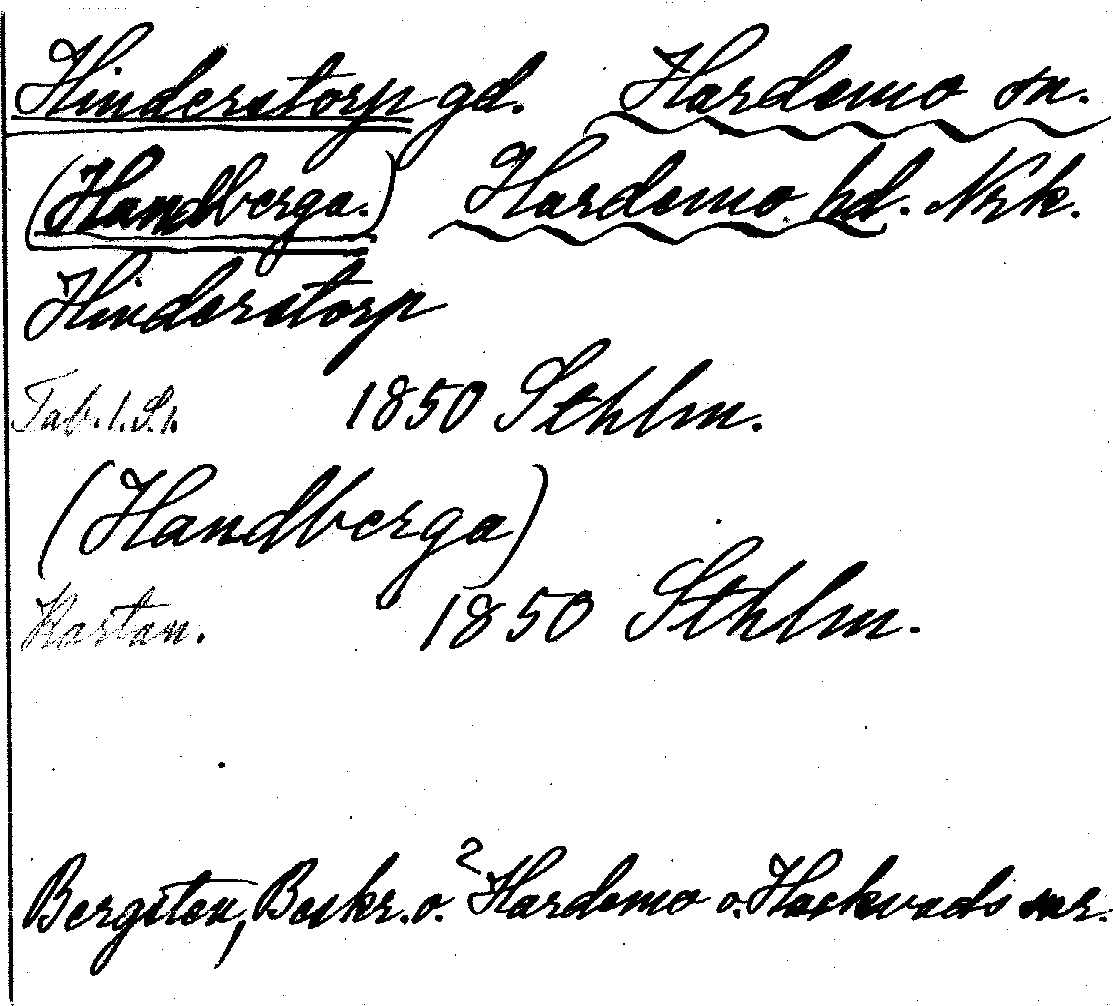 Hinderstorp gd. Hardemo sn.
(Handberga.) Hardemo hd. Nrk.
Hinderstorp
Tab. 1. S. 1. 1850 Sthlm.
(Handberga)
Kartan. 1850 Sthlm.
Bergsten, Beskr. o. 2 Hardemo o. Hackvads snr.